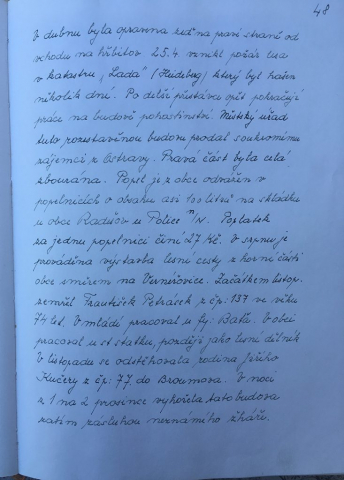 48
V dubnu byla opravena zeď na pravé straně od
vchodu na hřbitov 25.4. vznikl požár lesa
v katastru „Lada" (Heideberg) který byl hašen
několik dní. Po delší přestávce opět pokračují
práce na budově pohostinství. Městský úřad
tuto rozestavěnou budovu prodal soukromému
zájemci z Ostravy. Pravá část byla celá
zbourána. Popel je z obce odvážen v
popelnicích o obsahu asi 100 litrů na skládku
u obce Radešov u Police n/M. Poplatek
za jednu popelnici činí 27 Kč. V srpnu je
prováděna výstavba lesní cesty z horní části
obce směrem na Vernéřovice. Začátkem listop.
zemřel František Petráček z čp: 137 ve věku
74 let. V mládí pracoval u fy: Baťa. V obci
pracoval u st statku, později jako lesní dělník
V listopadu se odstěhovala rodina Jiřího
Kučery z čp: 77 do Broumova. V noci
z 1 na 2 prosince vyhořela tato budova
zatím zásluhou neznámého žháře.